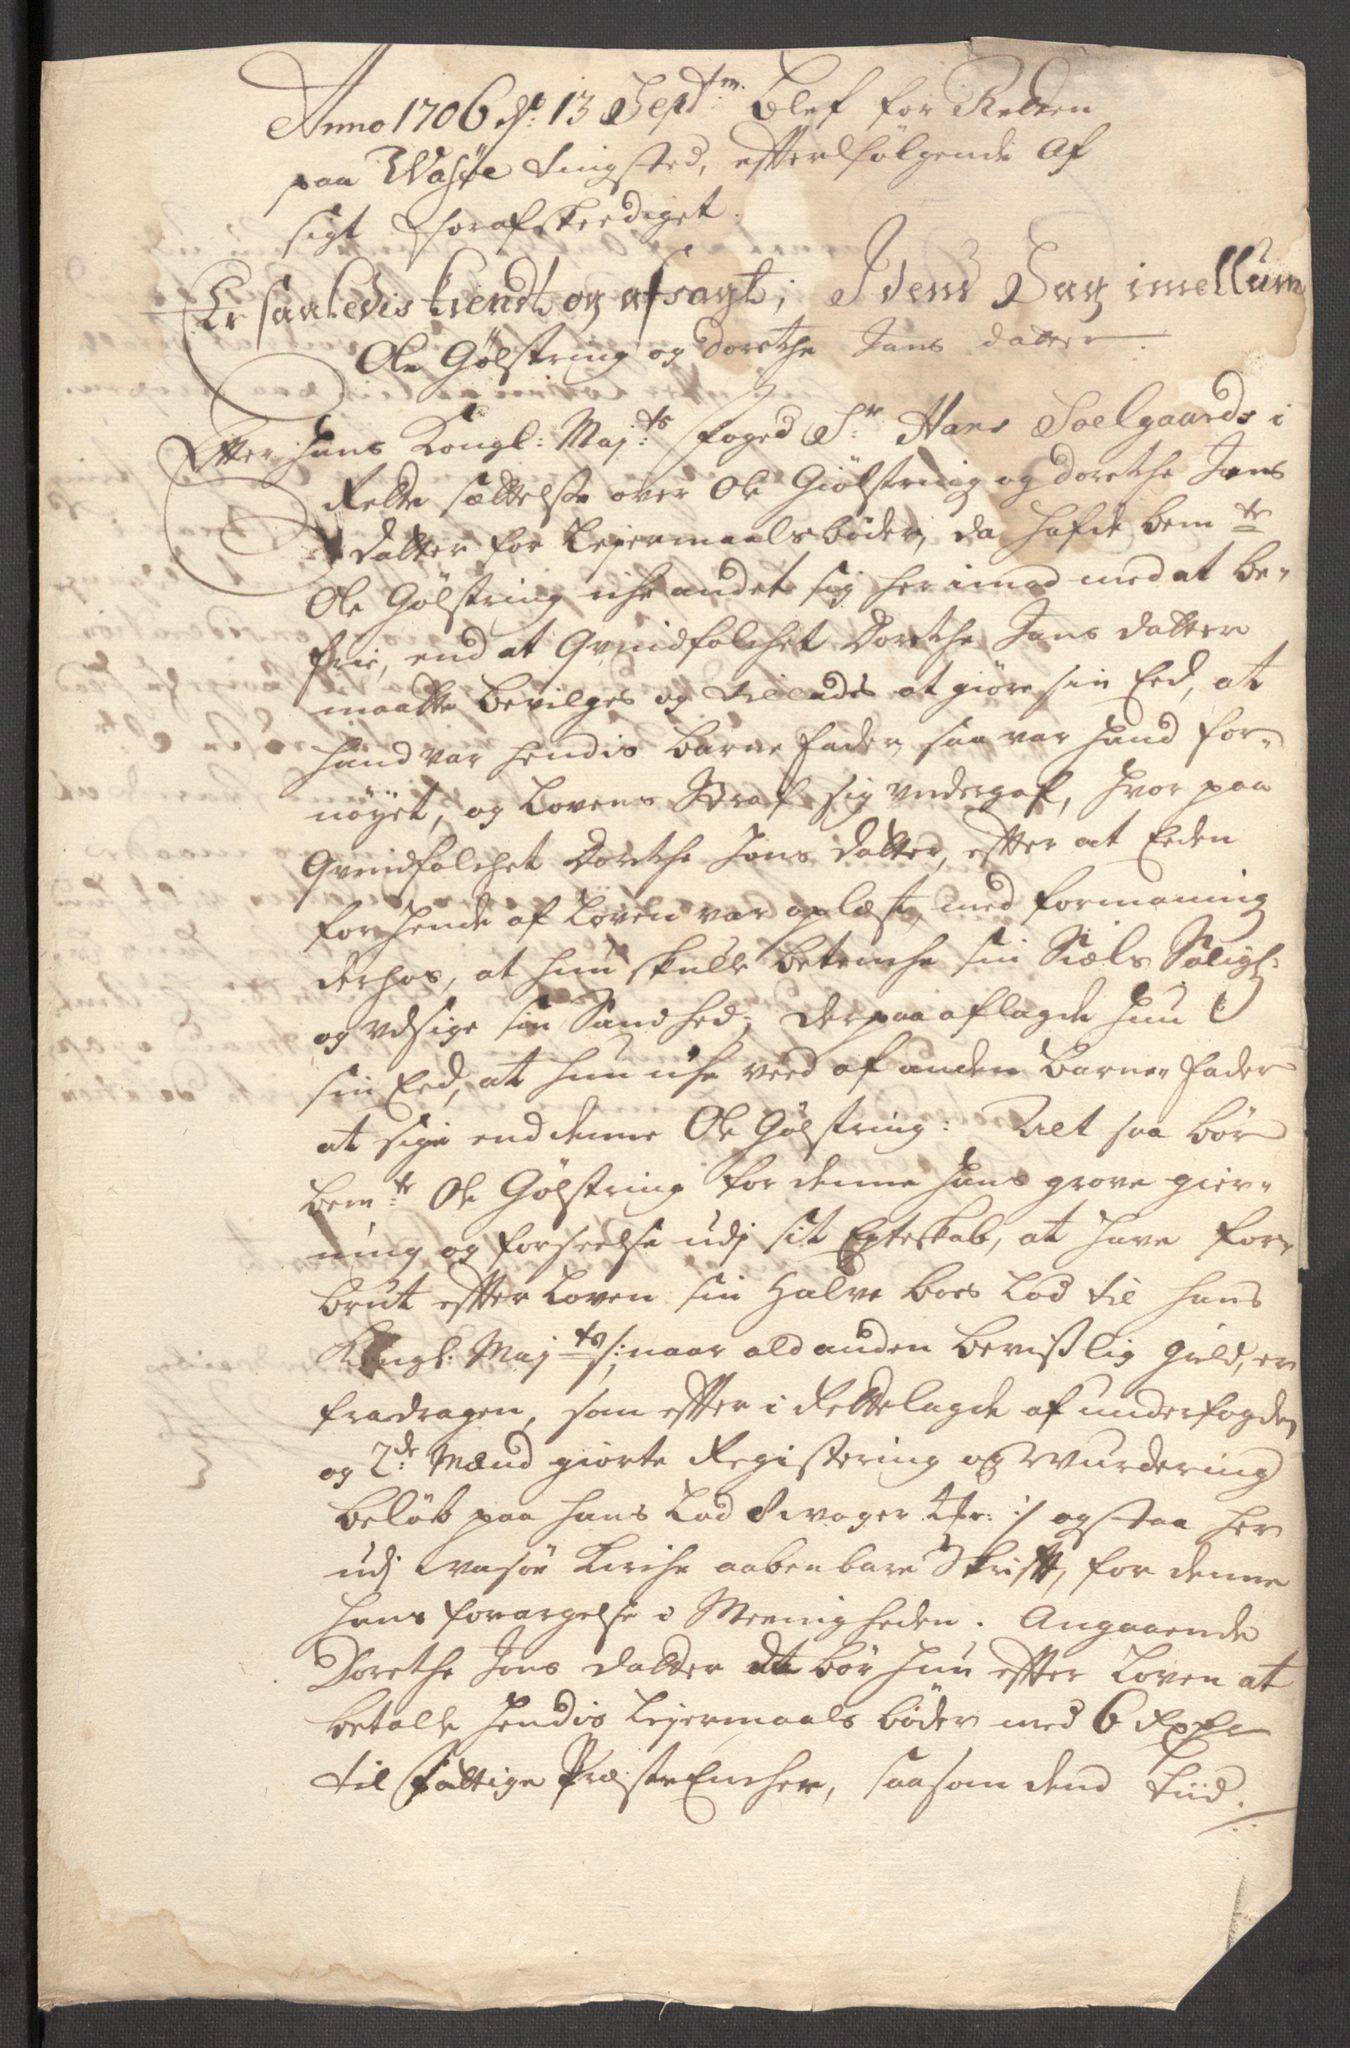 Anno 1706 d: 13 Septm: blef for Retten
paa Wasøe tingsted, efterfølgende Af
sigt forafskeediget.
Er saaledis kiendt og afsagt, i dens Sag imellum
Ole Gølstring og Dorethe Jons datter.
Efter Hans Kongl: Maj:ts foged Sr Hans Soelgaards i
Rette sættelse over Ole Giølstring og Dorethe Jons
datter for Leyermaals bøder, da hafde bem:te
Ole Gølstring iche andet sig her imod med at be-
frie, end at Qvindfolchet Dorethe Jons datter
maatte bevilges og tilladis at giøre sin Eed, at
hand var hendis barne fader, saa var hand for-
nøyet, og Lovens Straf sig undergaf, hvor paa
Qvindfolchet Dorethe Jons datter, efter at Eeden
for hende af Loven var oplæst, med formaning
derhos, at hun skulle betenche sin Siæls Saligh:
og udsige sin Sandhed; derpaa aflagde hun
sin Eed, at hun iche veed af anden barne fader
at sige end denne Ole Gølstring: Alt saa bør
bem:te Ole Gølstring for denne hans grove gier-
ning og forseelse udj sit Egteskab, at have for-
brut efter Loven sin Halve boes Lod til hans
Kongl: Maj:ts /: naar ald anden bevislig gield, er
fradragen, som efter i Rettelagde af underfogden
og 2de Mænd giorte Registering og Wurdering
beløb paa hans Lod :/ og staa her
udj Wasøe Kirche aabenbare Skrift, for denne
hans forargelse i Meenigheden. Angaaende
Dorethe Jons datter da bør hun efter Loven at
betalle hendis Leyermaals bøder med 6 Rixdr
til fattige PræsteEncher, saasom dend tiid.